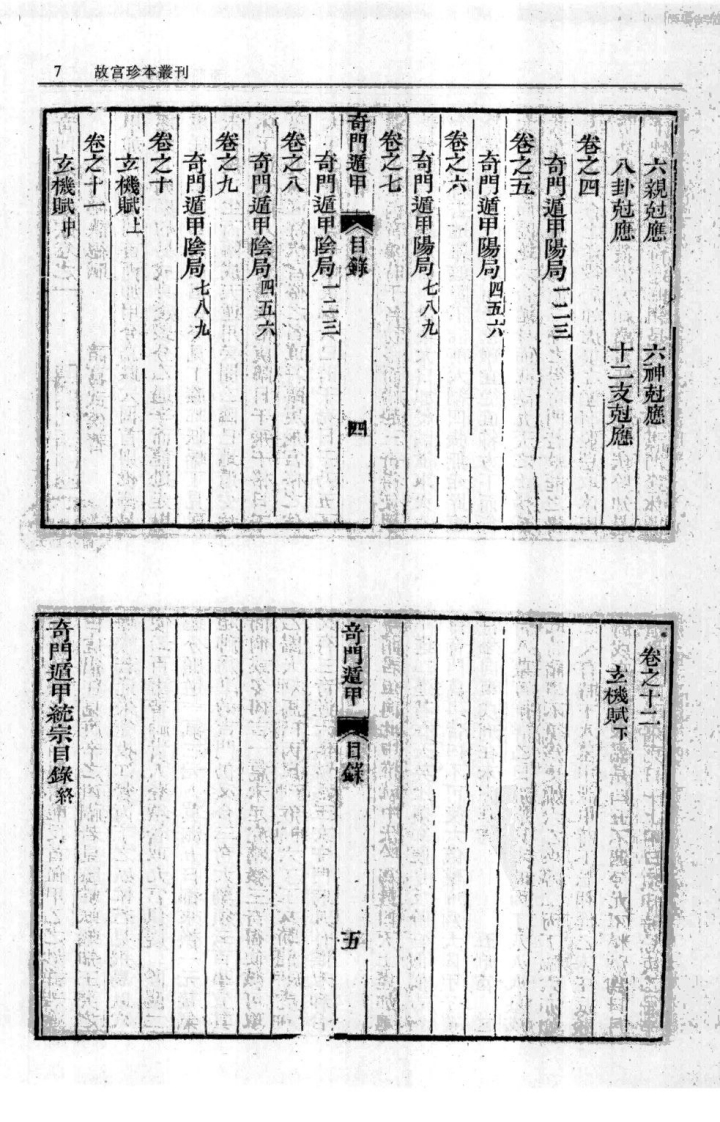 7 故宮珍本叢刊
六親尅應 六神尅應
八卦尅應 十二支尅應
卷之四
奇門遁甲陽局一二三
卷之五
奇門遁甲陽局四五六
卷之六
奇門遁甲陽局七八九
卷之七
奇門遁甲 目錄 四
奇門遁甲陰局一二三
卷之八
奇門遁甲陰局四五六
卷之九
奇門遁甲陰局七八九
卷之十
玄機賦上
卷之十一
玄機賦中
卷之十二
玄機賦下
奇門遁甲 目錄 五
奇門遁甲統宗目錄終